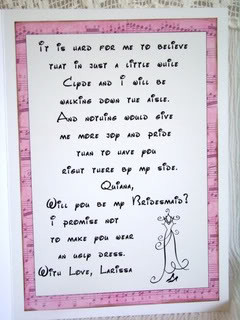 it is hard for me to believe
that in just a little while
Clyde and I will be
walking down the aisle.
And nothing would give
me more joy and pride
than to have you
right there by my side.
Quiana,
Will you be my Bridesmaid?
I promise not
to make you wear
an ugly dress.
With Love, Larissa